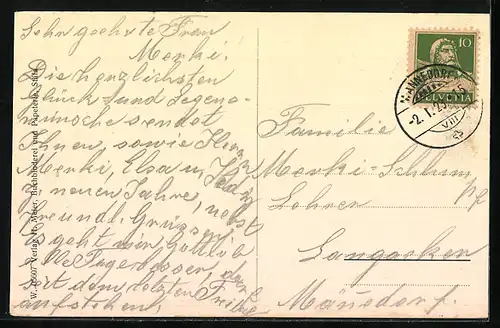 Sehr geehrte Frau
Menki!
Die herzlichsten
Glück und Segens-
wünsche sendet
Ihnen, sowie Herr
Menki, Elsa u.
z. neuen Jahre, nebst
freundl. Grüssen
es geht wen Gottlob
alle Tage besser,
seit dem letzten Freitag
aufstehen,
W. 7600 Verlag H. Meier, Buchbinderei und Papeterie, Stäfa
10
HELVETIA
MÄNNEDORF
-2.1.
VIII
Familie
Menki-Schlump
Lehrer
Langacker
Mänedorf.